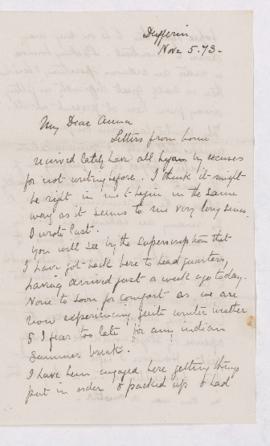 Dufferin
Nov. 5. 73.
My Dear Anna
Letters from home
received lately have all began by excuses
for not writing before. I think it might
be right in me to begin in the same
way as it seems to me very long since
I wrote last.
You will see by the superscription that
I have got back here to Head Quarters,
having arrived just a week ago today.
None to soon for comfort as we are
now experiencing quite winter weather
& I fear too late for any indian
Summer
I have been engaged here getting things
put in order & packed up & had